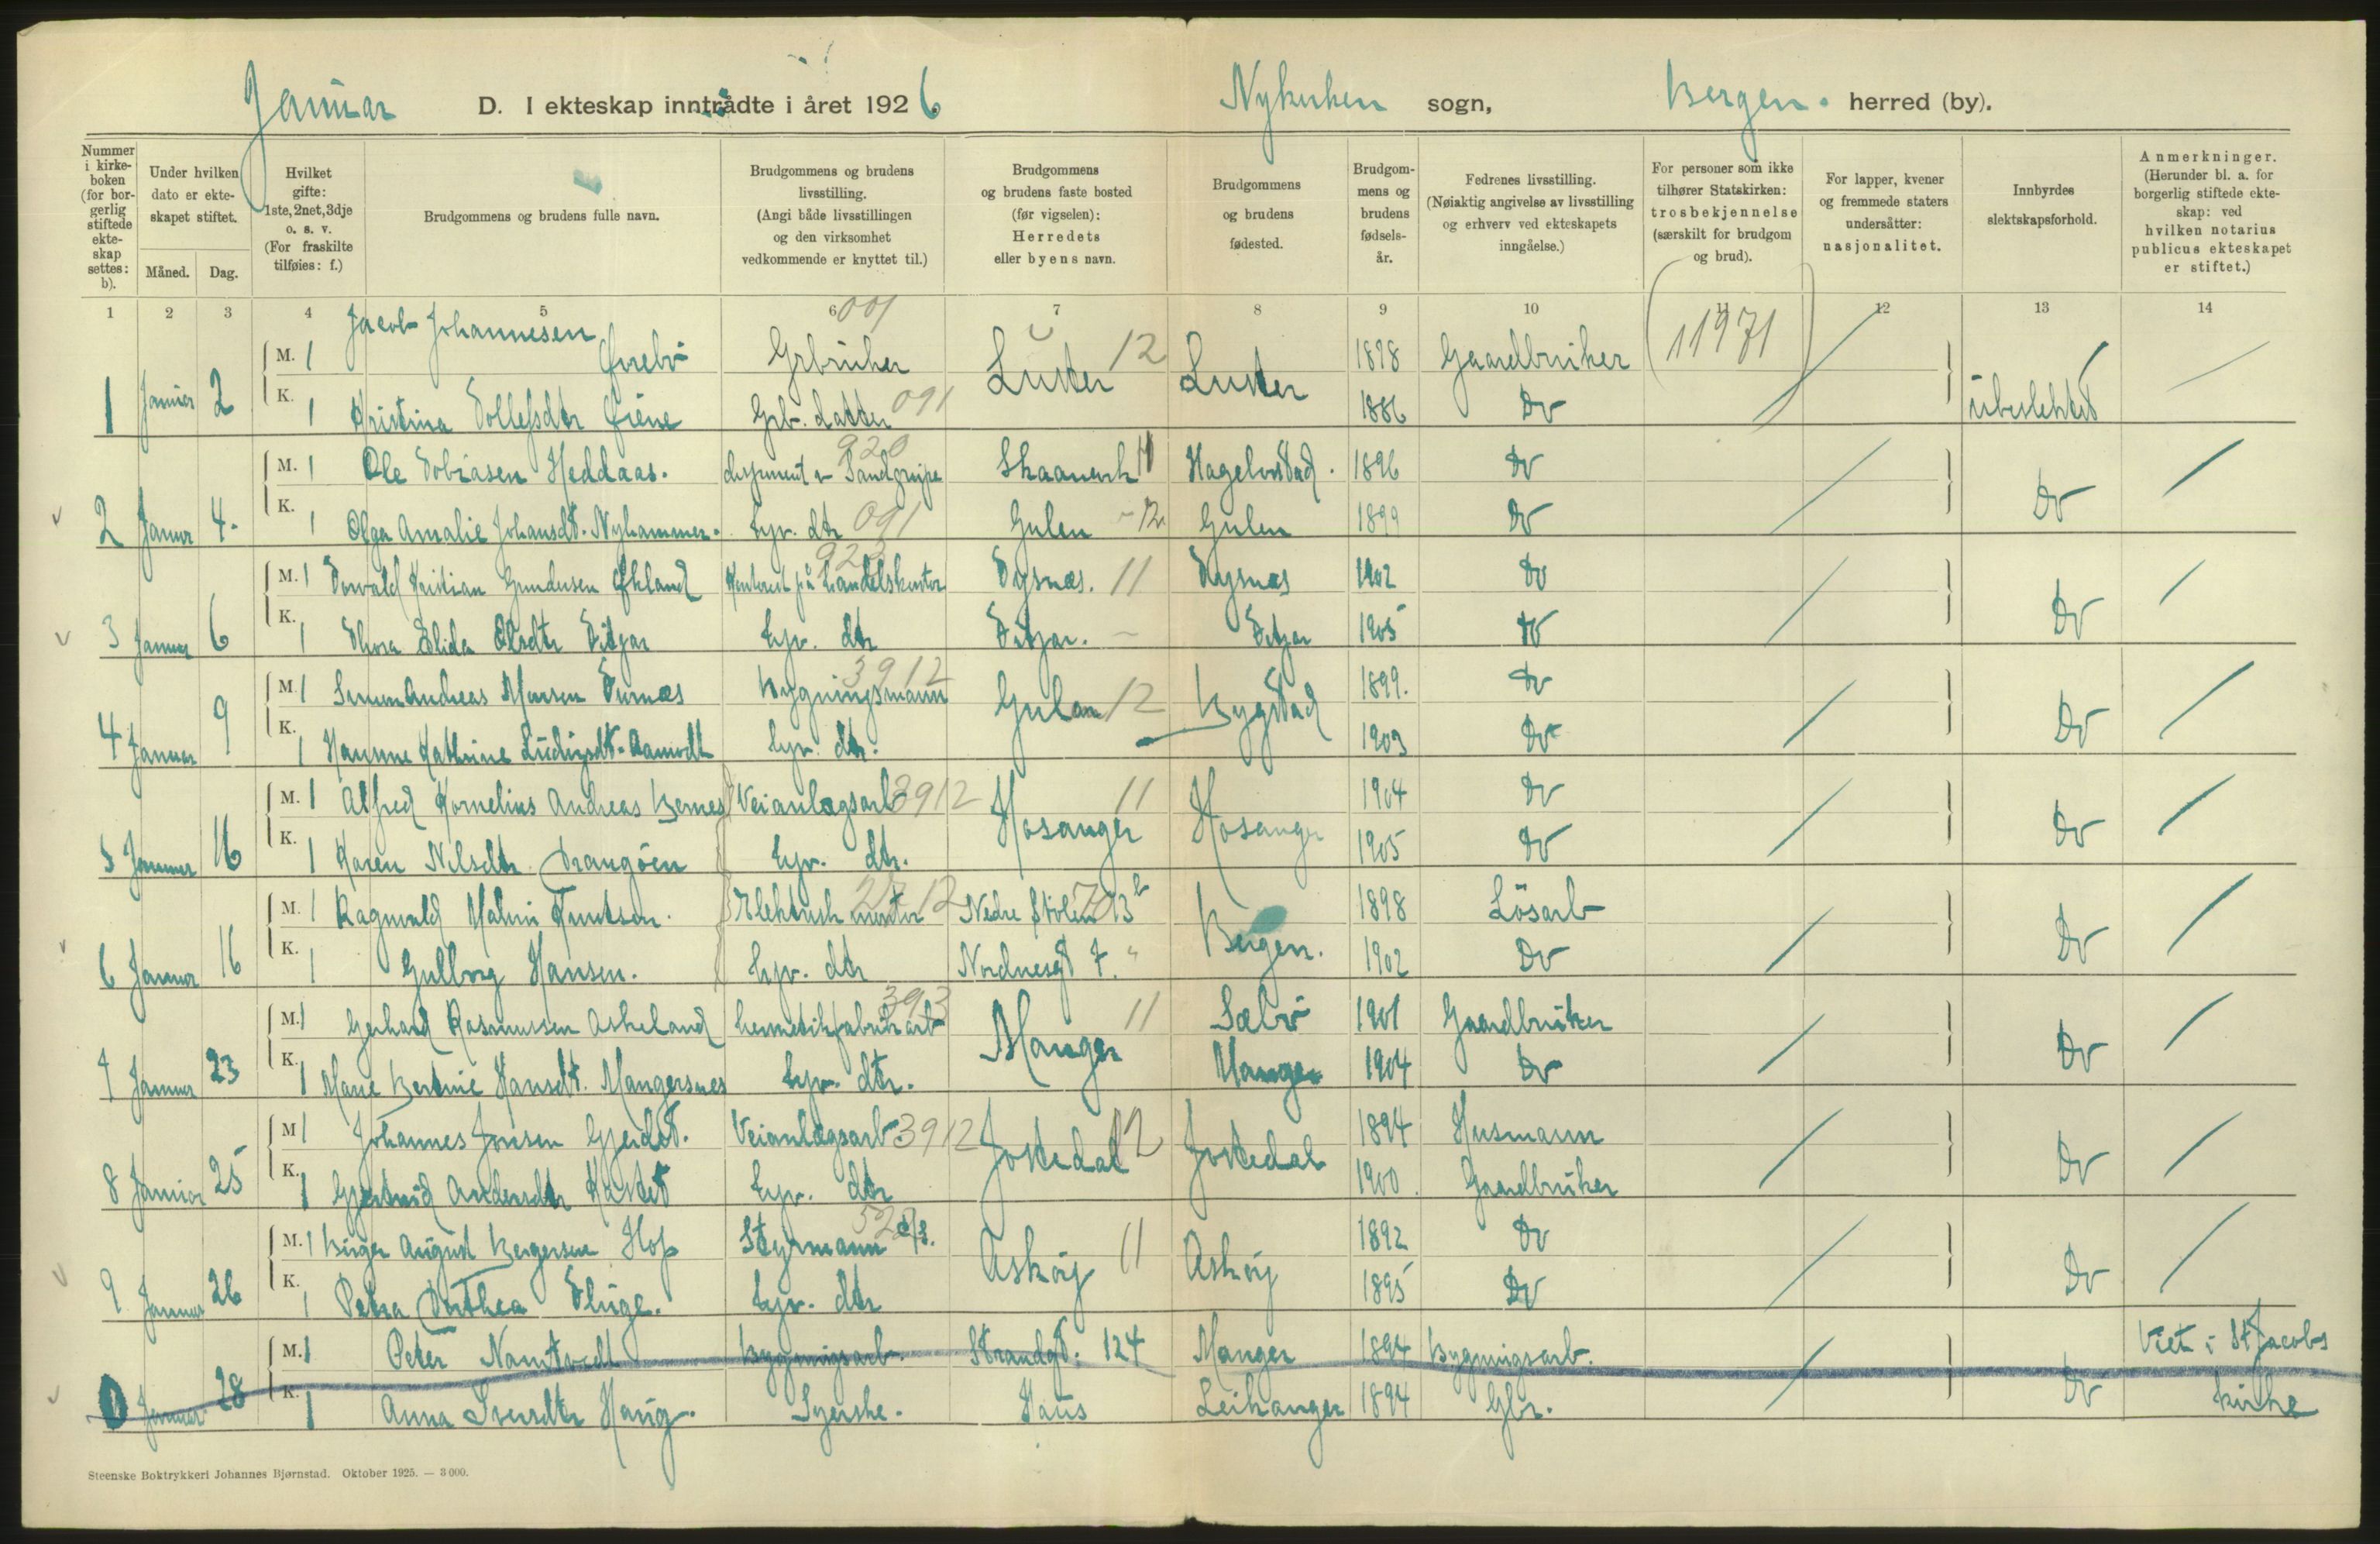 Januar D. I ekteskap inntrådte i året 1926 Nykirken sogn, Bergen. herred (by).
Nummer i kirkeboken (for borgerlig stiftede ekteskap settes: b).
Under hvilken dato er ekteskapet stiftet.
Måned. Dag.
Hvilket gifte: 1ste, 2net, 3dje o. s. v. (For fraskilte tilføies: f.)
Brudgommens og brudens fulle navn.
Brudgommens og brudens livsstilling. (Angi både livsstillingen og den virksomhet vedkommende er knyttet til.)
Brudgommens og brudens faste bosted (før vigselen): Herredets eller byens navn.
Brudgommens og brudens fødested.
Brudgommens og brudens fødselsår.
Fedrenes livsstilling. (Nøiaktig angivelse av livsstilling og erhverv ved ekteskapets inngåelse.)
For personer som ikke tilhører Statskirken: trosbekjennelse (særskilt for brudgom og brud).
For lapper, kvener og fremmede staters undersåtter: nasjonalitet.
Innbyrdes slektskapsforhold.
Anmerkninger. (Herunder bl. a. for borgerlig stiftede ekteskap: ved hvilken notarius publicus ekteskapet er stiftet.)
1 2 3 4 5 6 7 8 9 10 11 12 13 14
001 (11971)
Jacob Johannesen
M. 1 Grbruker Luster 12 Luster 1878 Gaardbruker
1 Januar 2 K. 1 Kristina Grb. datter 091 1886 Do ubeslektet
M. 1 Ole Tobiasen Heddaas. 920 Skaanevik 11 1896 Do
2 Januar 4. K. 1 Olga Amalie Johansdt. Nyhammer. hjv. dtr 091 Gulen 12 Gulen 1899 Do Do
M. 1 Kristian Gundersen 922 Kontorist på handelskontor Tysnæs. 11 Tysnæs 1902 Do
3 Januar 6 K. 1 Thora Elida Olsdtr Fitjar hjv. dtr Fitjar. Fitjar 1905 Do Do
M. 1 Andreas Monsen 3912 Bygningsmann Gulen 12 Bygstad 1899. Do
4 Januar 9 K. 1 Kathrine hjv. dtr. 1903 Do Do
M. 1 Alfred Kornelius Andreas Bernes Veianlægsarb 3912 Hosanger 11 Hosanger 1904 Do
5 Januar 16 K. 1 Karen Nilsdtr. hjv. dtr. 1905 Do Do
M. 1 Ragnvald Knutsen. Elektrisk montør Nedre Stølen 13 b Bergen. 1898 Løsarb
6 Januar 16 K. 1 Gulborg Hansen. hjv. dtr Nordnesgt 7. " 1902 Do Do
M. 1 Gerhard Rasmussen Askeland 393 hermetikfabrikarb Manger 11 Sæbø 1901 Gaardbruker
7 Januar 23 K. 1 Marie Bertine Hansdt. Mangersnes hjv. dtr. Manger 1904 Do Do
M. 1 Johannes Jonsen Gjerdet. Veianlægsarb 3912 Jostedal 12 Jostedal 1894 Husmann
8 Januar 25 K. 1 Gjertrud Andersdtr hjv. dtr 1900. Gaardbruker Do
M. 1 Birger August Bergersen Hop Styrmann Askøy 11 Askøy 1892 Do
9 Januar 26 K. 1 Petra Dorthea hjv. dtr 1895 Do Do
M. 1 Peter Bygningsarb. Strandgt. 124 Manger 1894 Bygningsarb. Viet i St Jacobs
Januar 28 K. 1 Anna Syerske. Haus Leikanger 1894 Gbr. Do kirke
Steenske Boktrykkeri Johannes Bjørnstad. Oktober 1925. — 3 000.